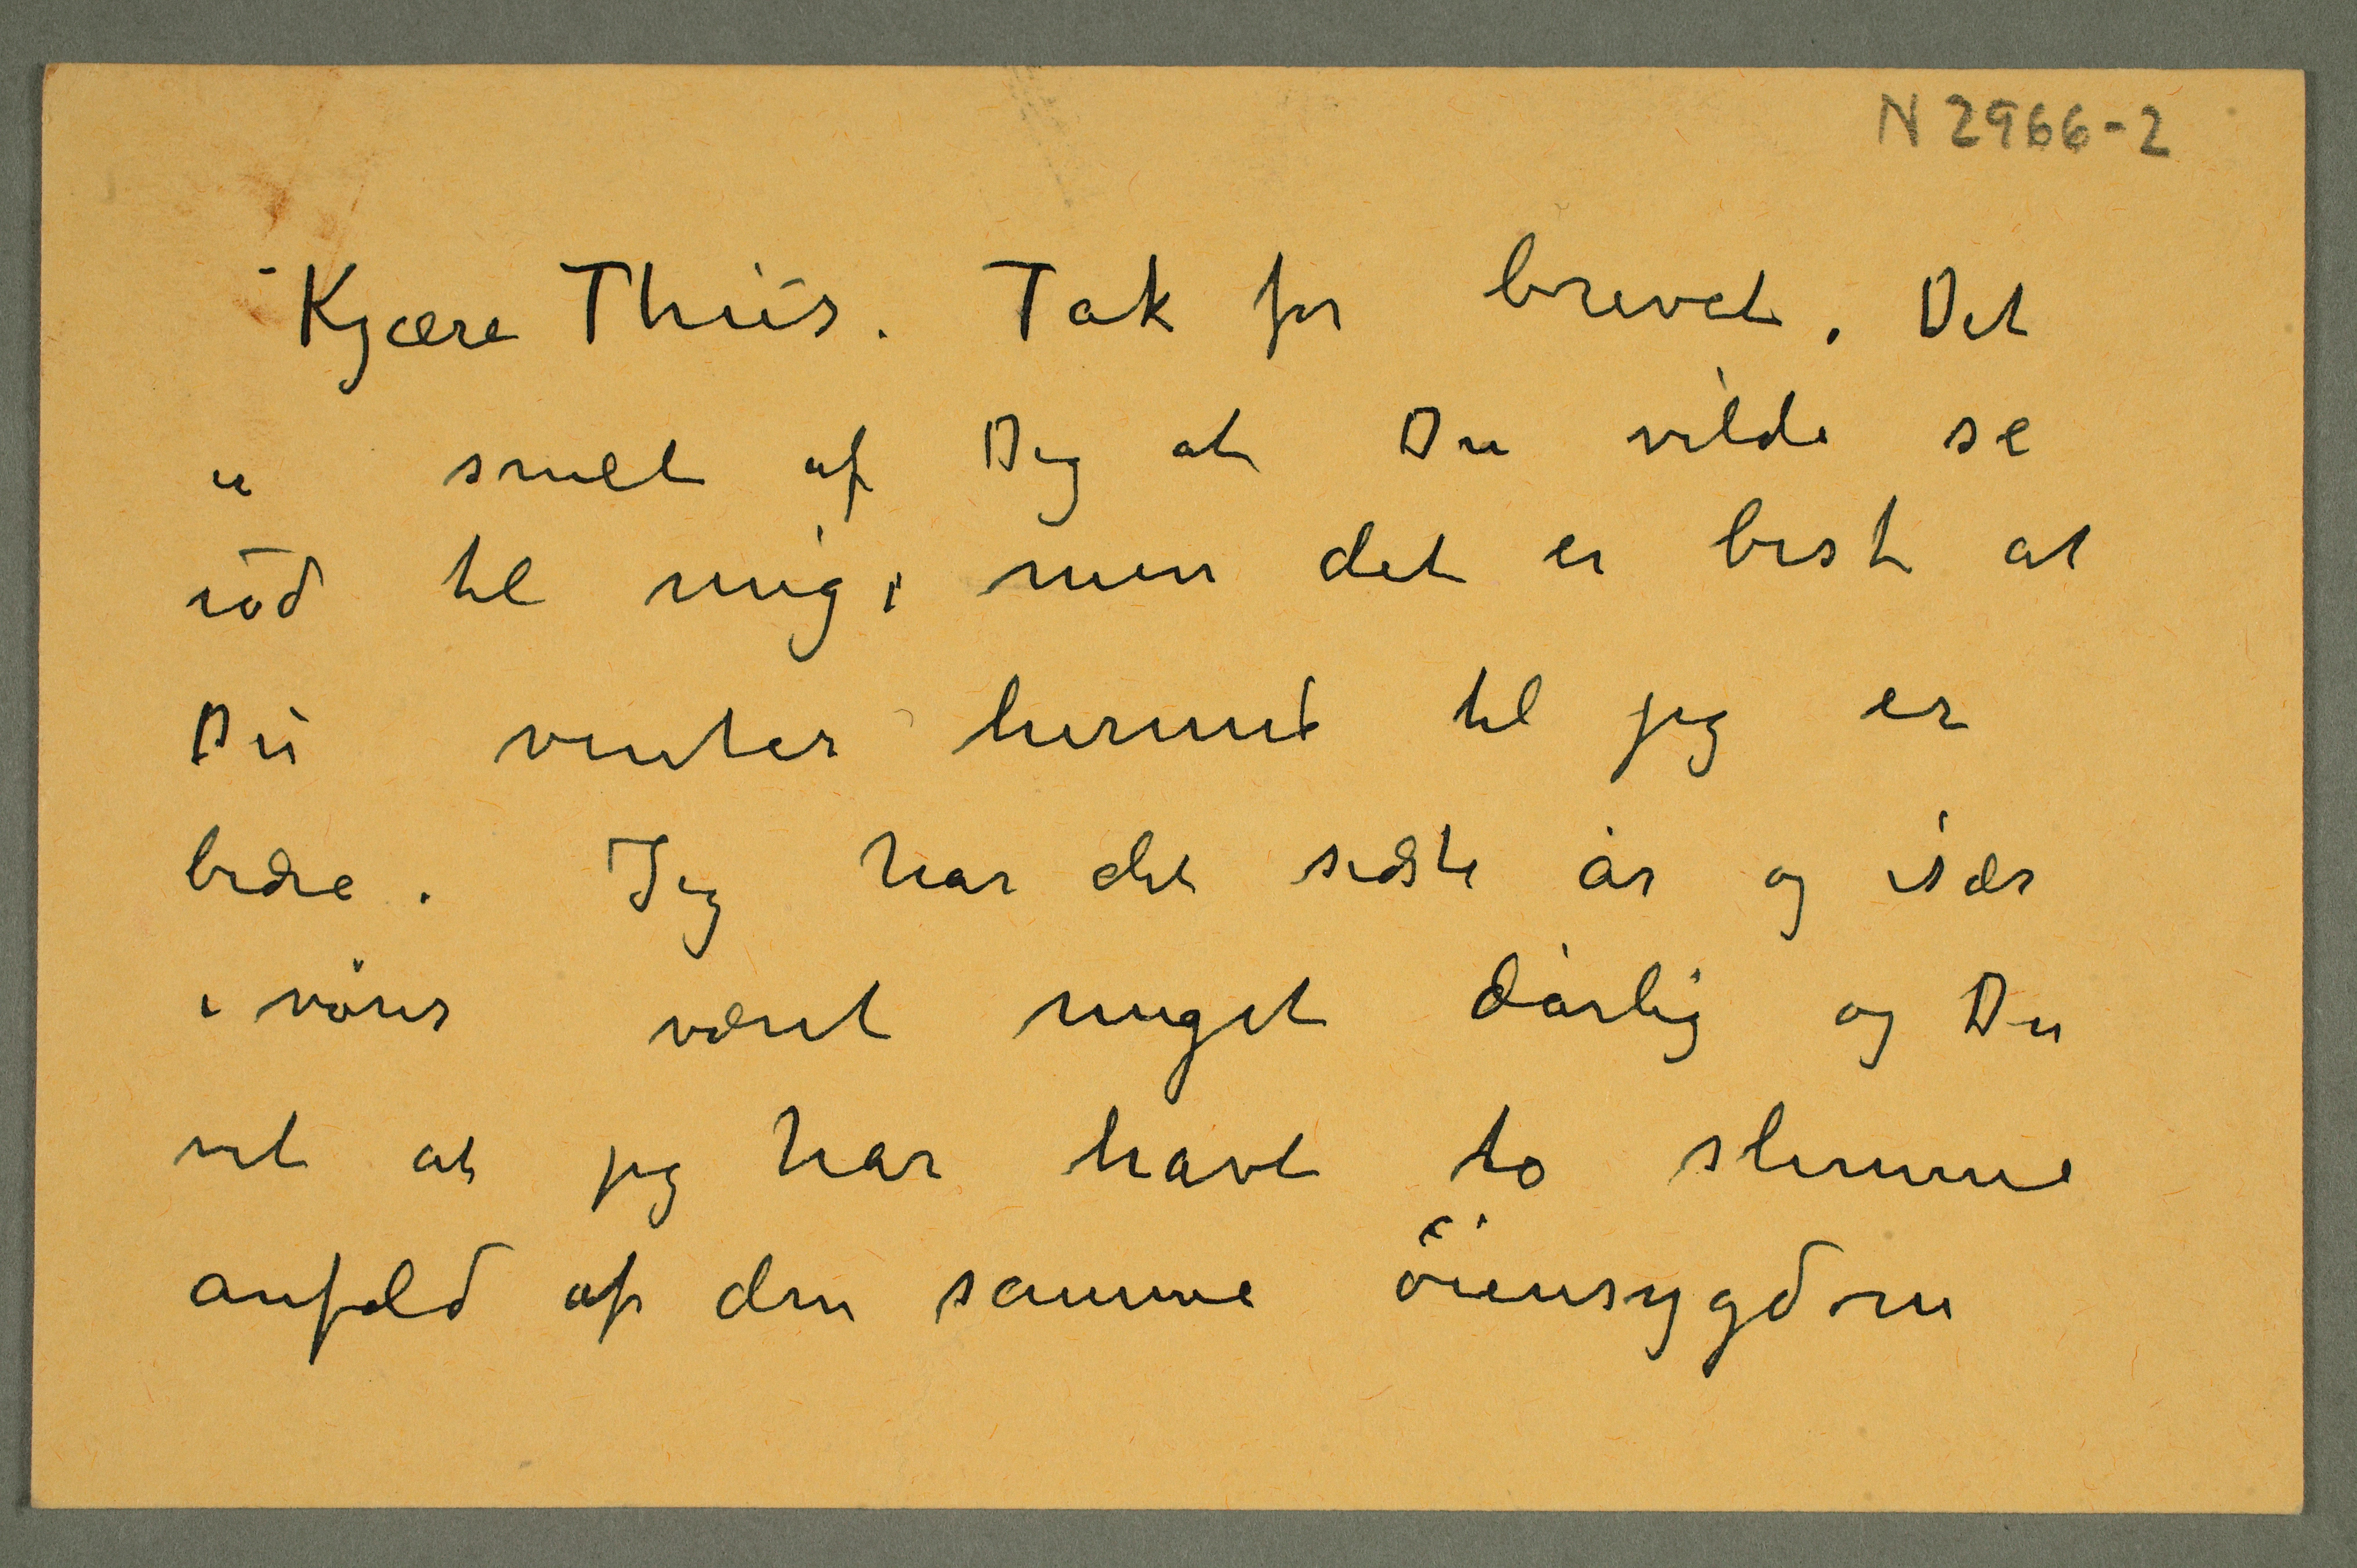 N 2966-2
Kjære Thiis. Tak for brevet. Det
er snilt af Dig at Du vilde se
ud til mig, men det er best at
Du venter hermed til jeg er
bedre. Jeg har det sidste år og især
i våres været meget dårlig og Du
vet at jeg har havt to slemme
anfald af den samme öiensygdom